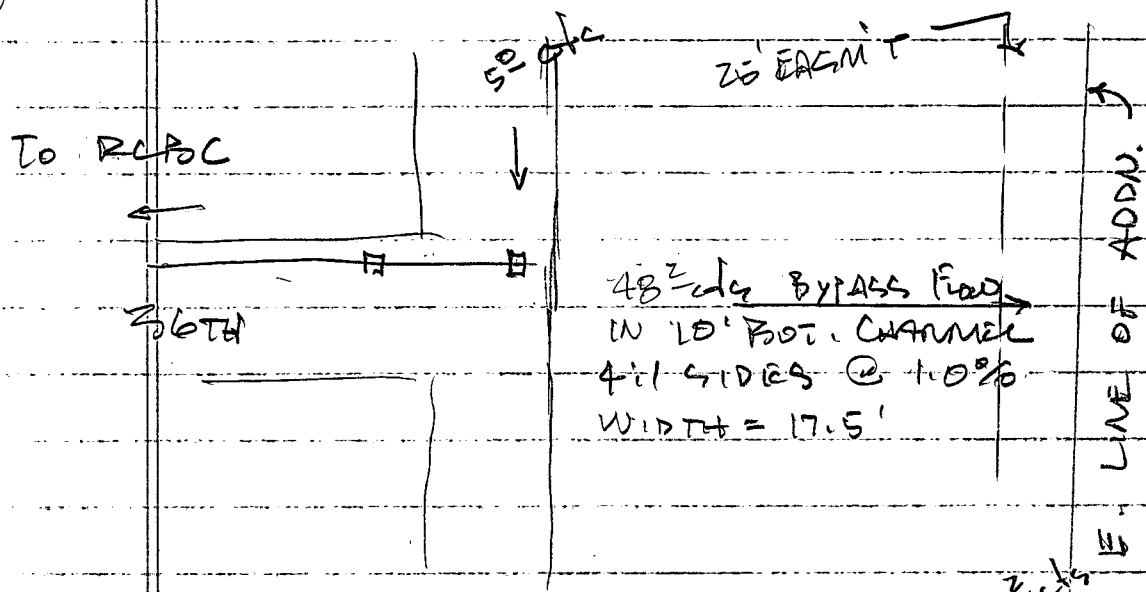 5⁰ cfs
20' EASM'T
TO RCBC
36TH
48² cfs BYPASS FLOW
IN 10' BOT. CHANNEL
4:1 SIDES @ 1.0%
WIDTH = 17.5'
E. LINE OF ADDN.
cfs